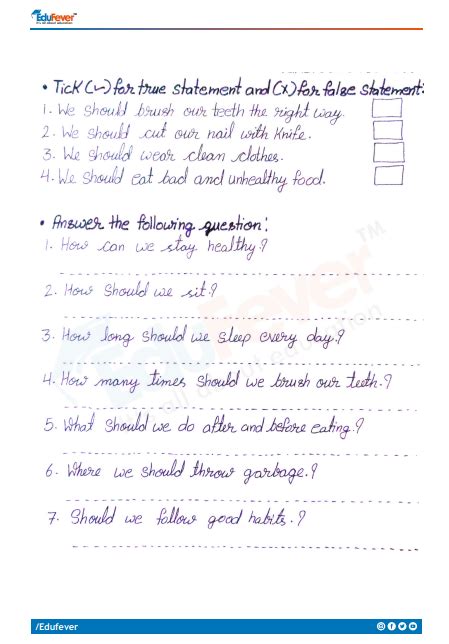 EduFever™
• Tick (✓) for true statement and (x) for false statement:
1. We should brush our teeth the right way.
2. We should cut our nail with Knife.
3. We should wear clean clothes.
4. We should eat bad and unhealthy food.
• Answer the following question:
1. How can we stay healthy?
2. How should we sit?
3. How long should we sleep every day.?
4. How many times should we brush our teeth.?
5. What should we do after and before eating.?
6. Where we should throw garbage.?
7. Should we follow good habits.?
EduFever™
all about education
/Edufever